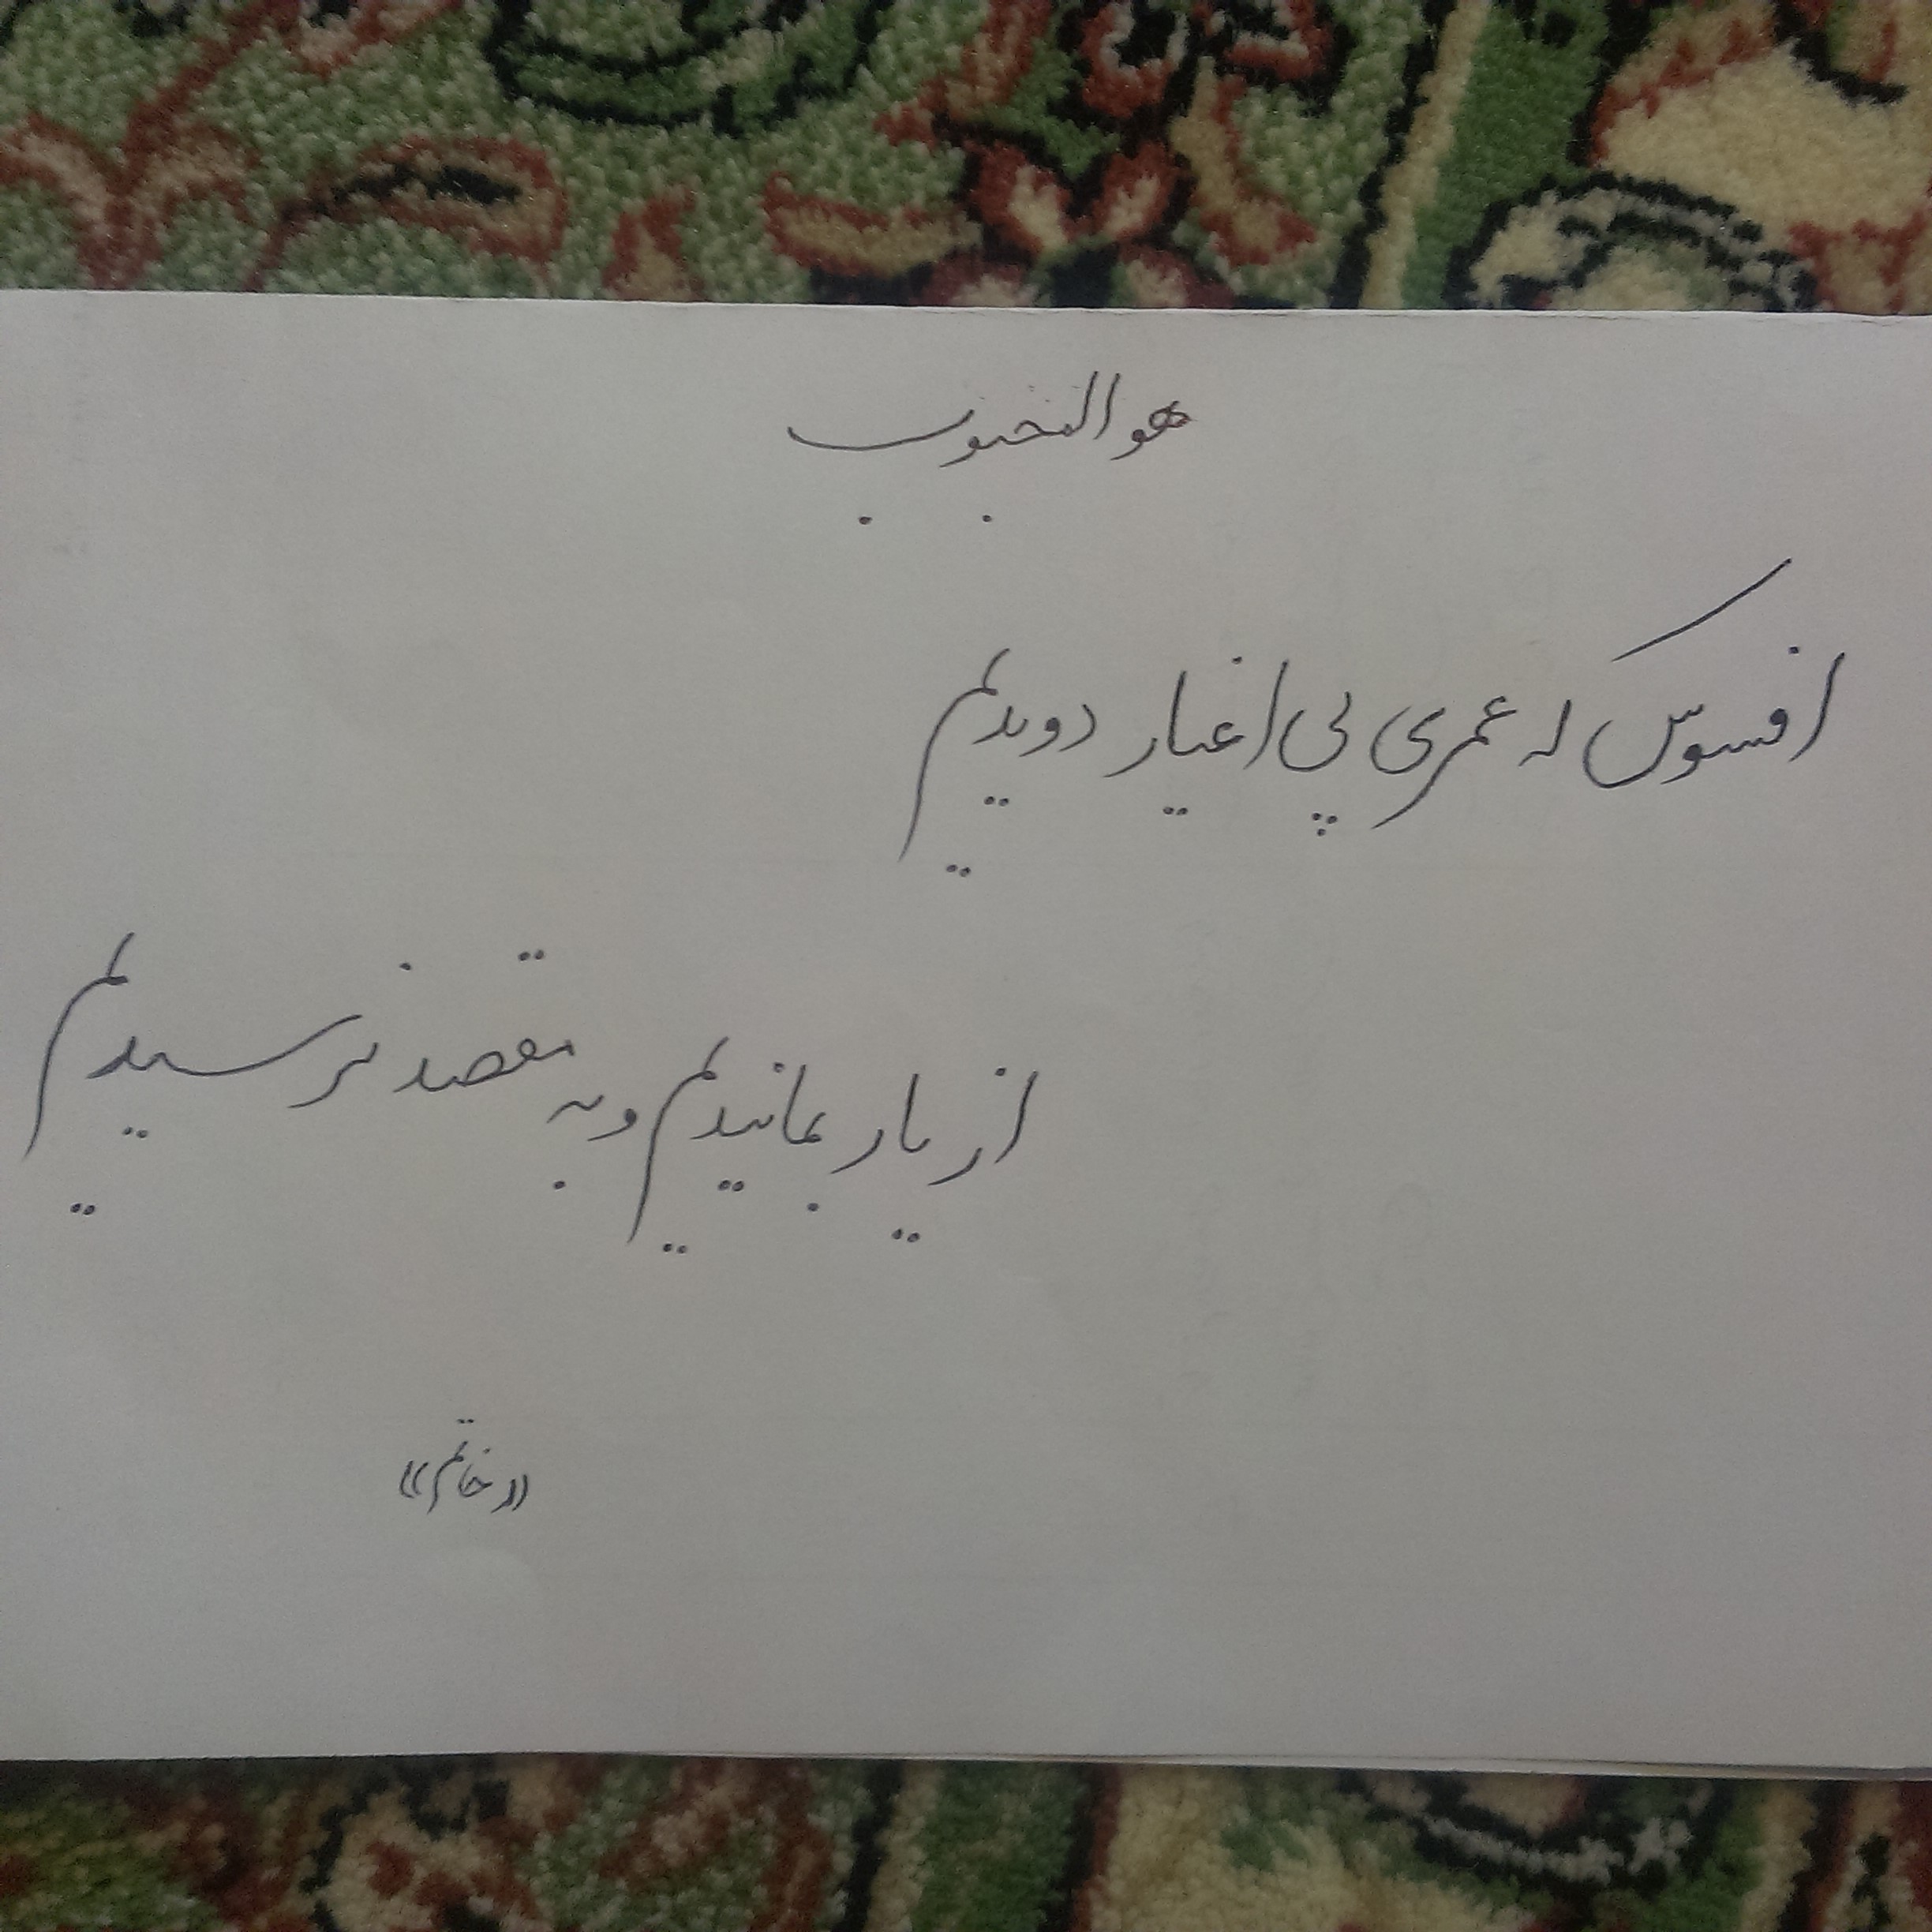 هو المحبوب
افسوس که عمری پی اغیار دویدیم
از یار بماندیم و به مقصد نرسیدیم
«خاتم»